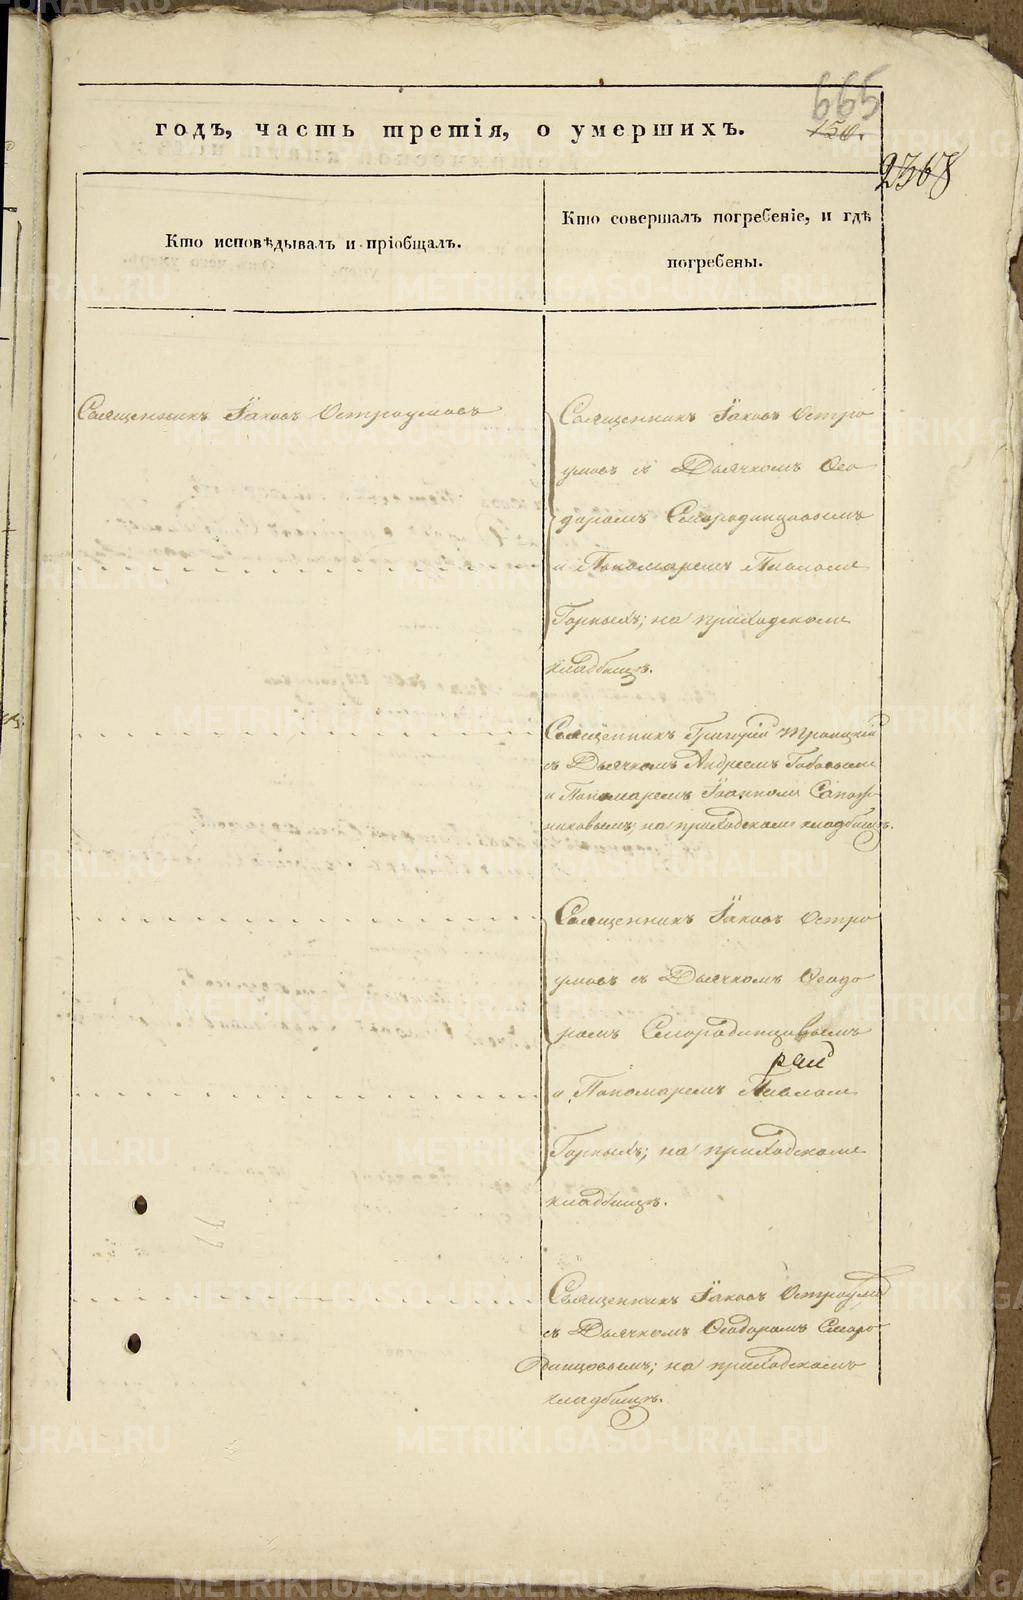 665
150.
годъ, часть третія, о умершихъ.
2368
Кто исповѣдывалъ и пріобщалъ.
Кто совершалъ погребеніе, и гдѣ
погребены.
Священникъ Іаковъ Остроумовъ
Священникъ Іаковъ Остро
умовъ съ Дьячкомъ Ѳео
доромъ Смородинцовымъ
и Пономаремъ Павломъ
Горныхъ; на приходскомъ
кладбищѣ.
Священникъ Григорій Троицкій
съ Дьячкомъ Андреемъ
и Пономаремъ Іоанномъ Сапож
никовымъ; на приходскомъ кладбищѣ.
Священникъ Іаковъ Остро
умовъ съ Дьячкомъ Ѳеодо
ромъ Смородинцовымъ
и Пономаремъ Павломъ
Горныхъ; на приходскомъ
кладбищѣ.
Священникъ Іаковъ Остроумовъ
съ Дьячкомъ Ѳеодоромъ Сморо
динцовымъ; на приходскомъ
кладбищѣ.
METRIKI.GASO-URAL.RU